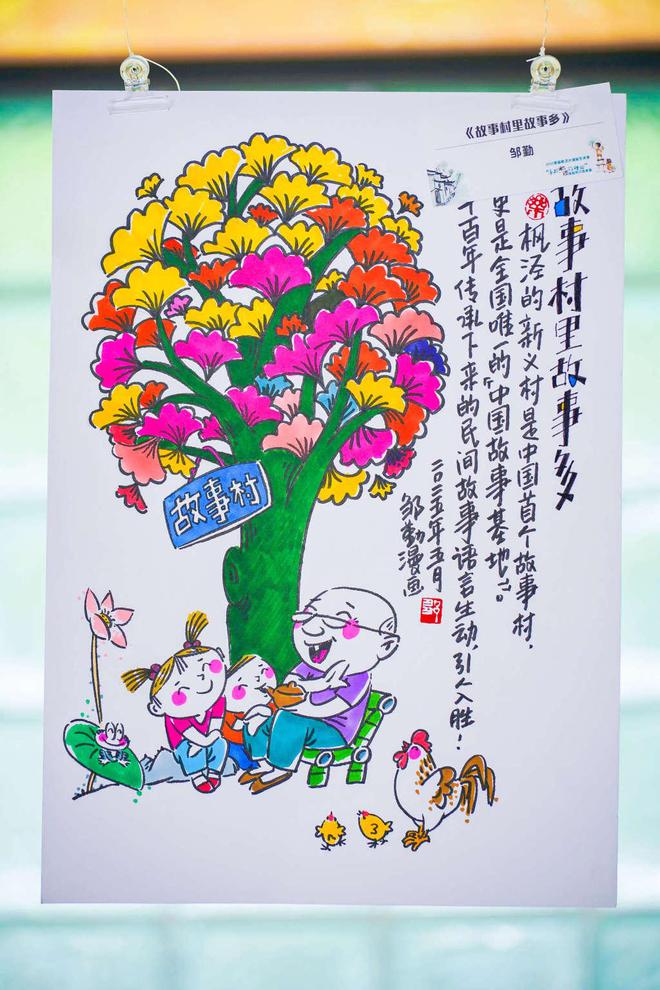 《故事村里故事多》
邹勤
故事村里故事多
枫泾的新义村是中国首个故事村，
更是全国唯一的“中国故事基地”。
百年传承下来的民间故事语言生动，引人入胜！
二〇二五年五月
邹勤漫画
故事村